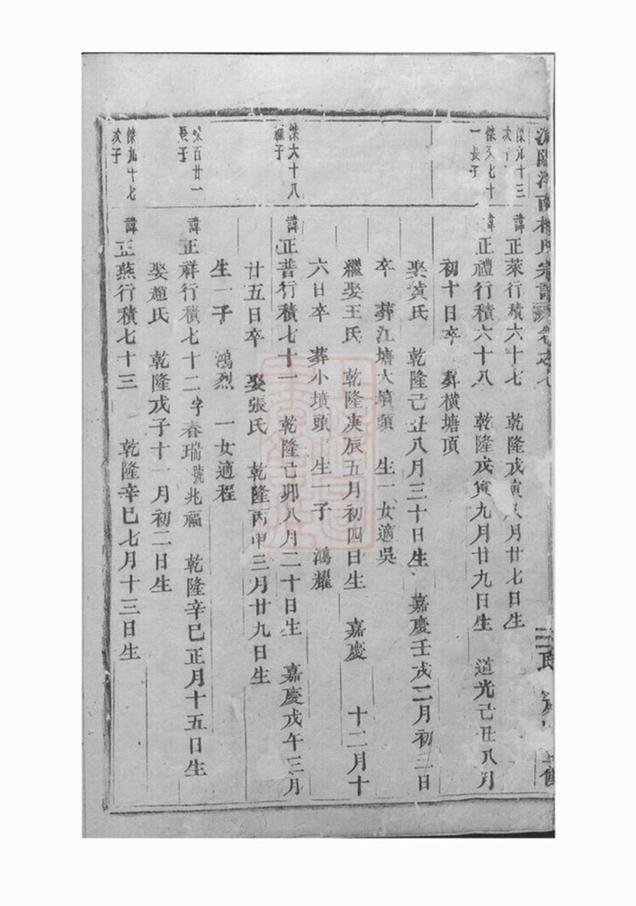 氏宗譜卷之七
傑九十三次子
諱正萊行積六十七 乾隆戊寅八月廿七日生
傑又七十一長子
諱正禮行積六十八 乾隆戊寅九月廿九日生 道光己丑八月
初十日卒 葬橫塘頂
娶黃氏 乾隆己丑八月三十日生 嘉慶壬戌二月初二日
卒 葬江塘大墳頭 生一女適吳
繼娶王氏 乾隆庚辰五月初四日生 嘉慶 十二月十
六日卒 葬小墳頭 生一子 鴻耀
傑六十八 子
諱正普行積七十一 乾隆己卯八月二十日生 嘉慶戊午三月
廿五日卒 娶張氏 乾隆丙申三月廿九日生
生一子 鴻烈 一女適程
傑百廿一長子
諱正祥行積七十二字春瑞號兆福 乾隆辛巳正月十五日生
娶趙氏 乾隆戊子十一月初二日生
傑九十七次子
諱正燕行積七十三 乾隆辛巳七月十三日生